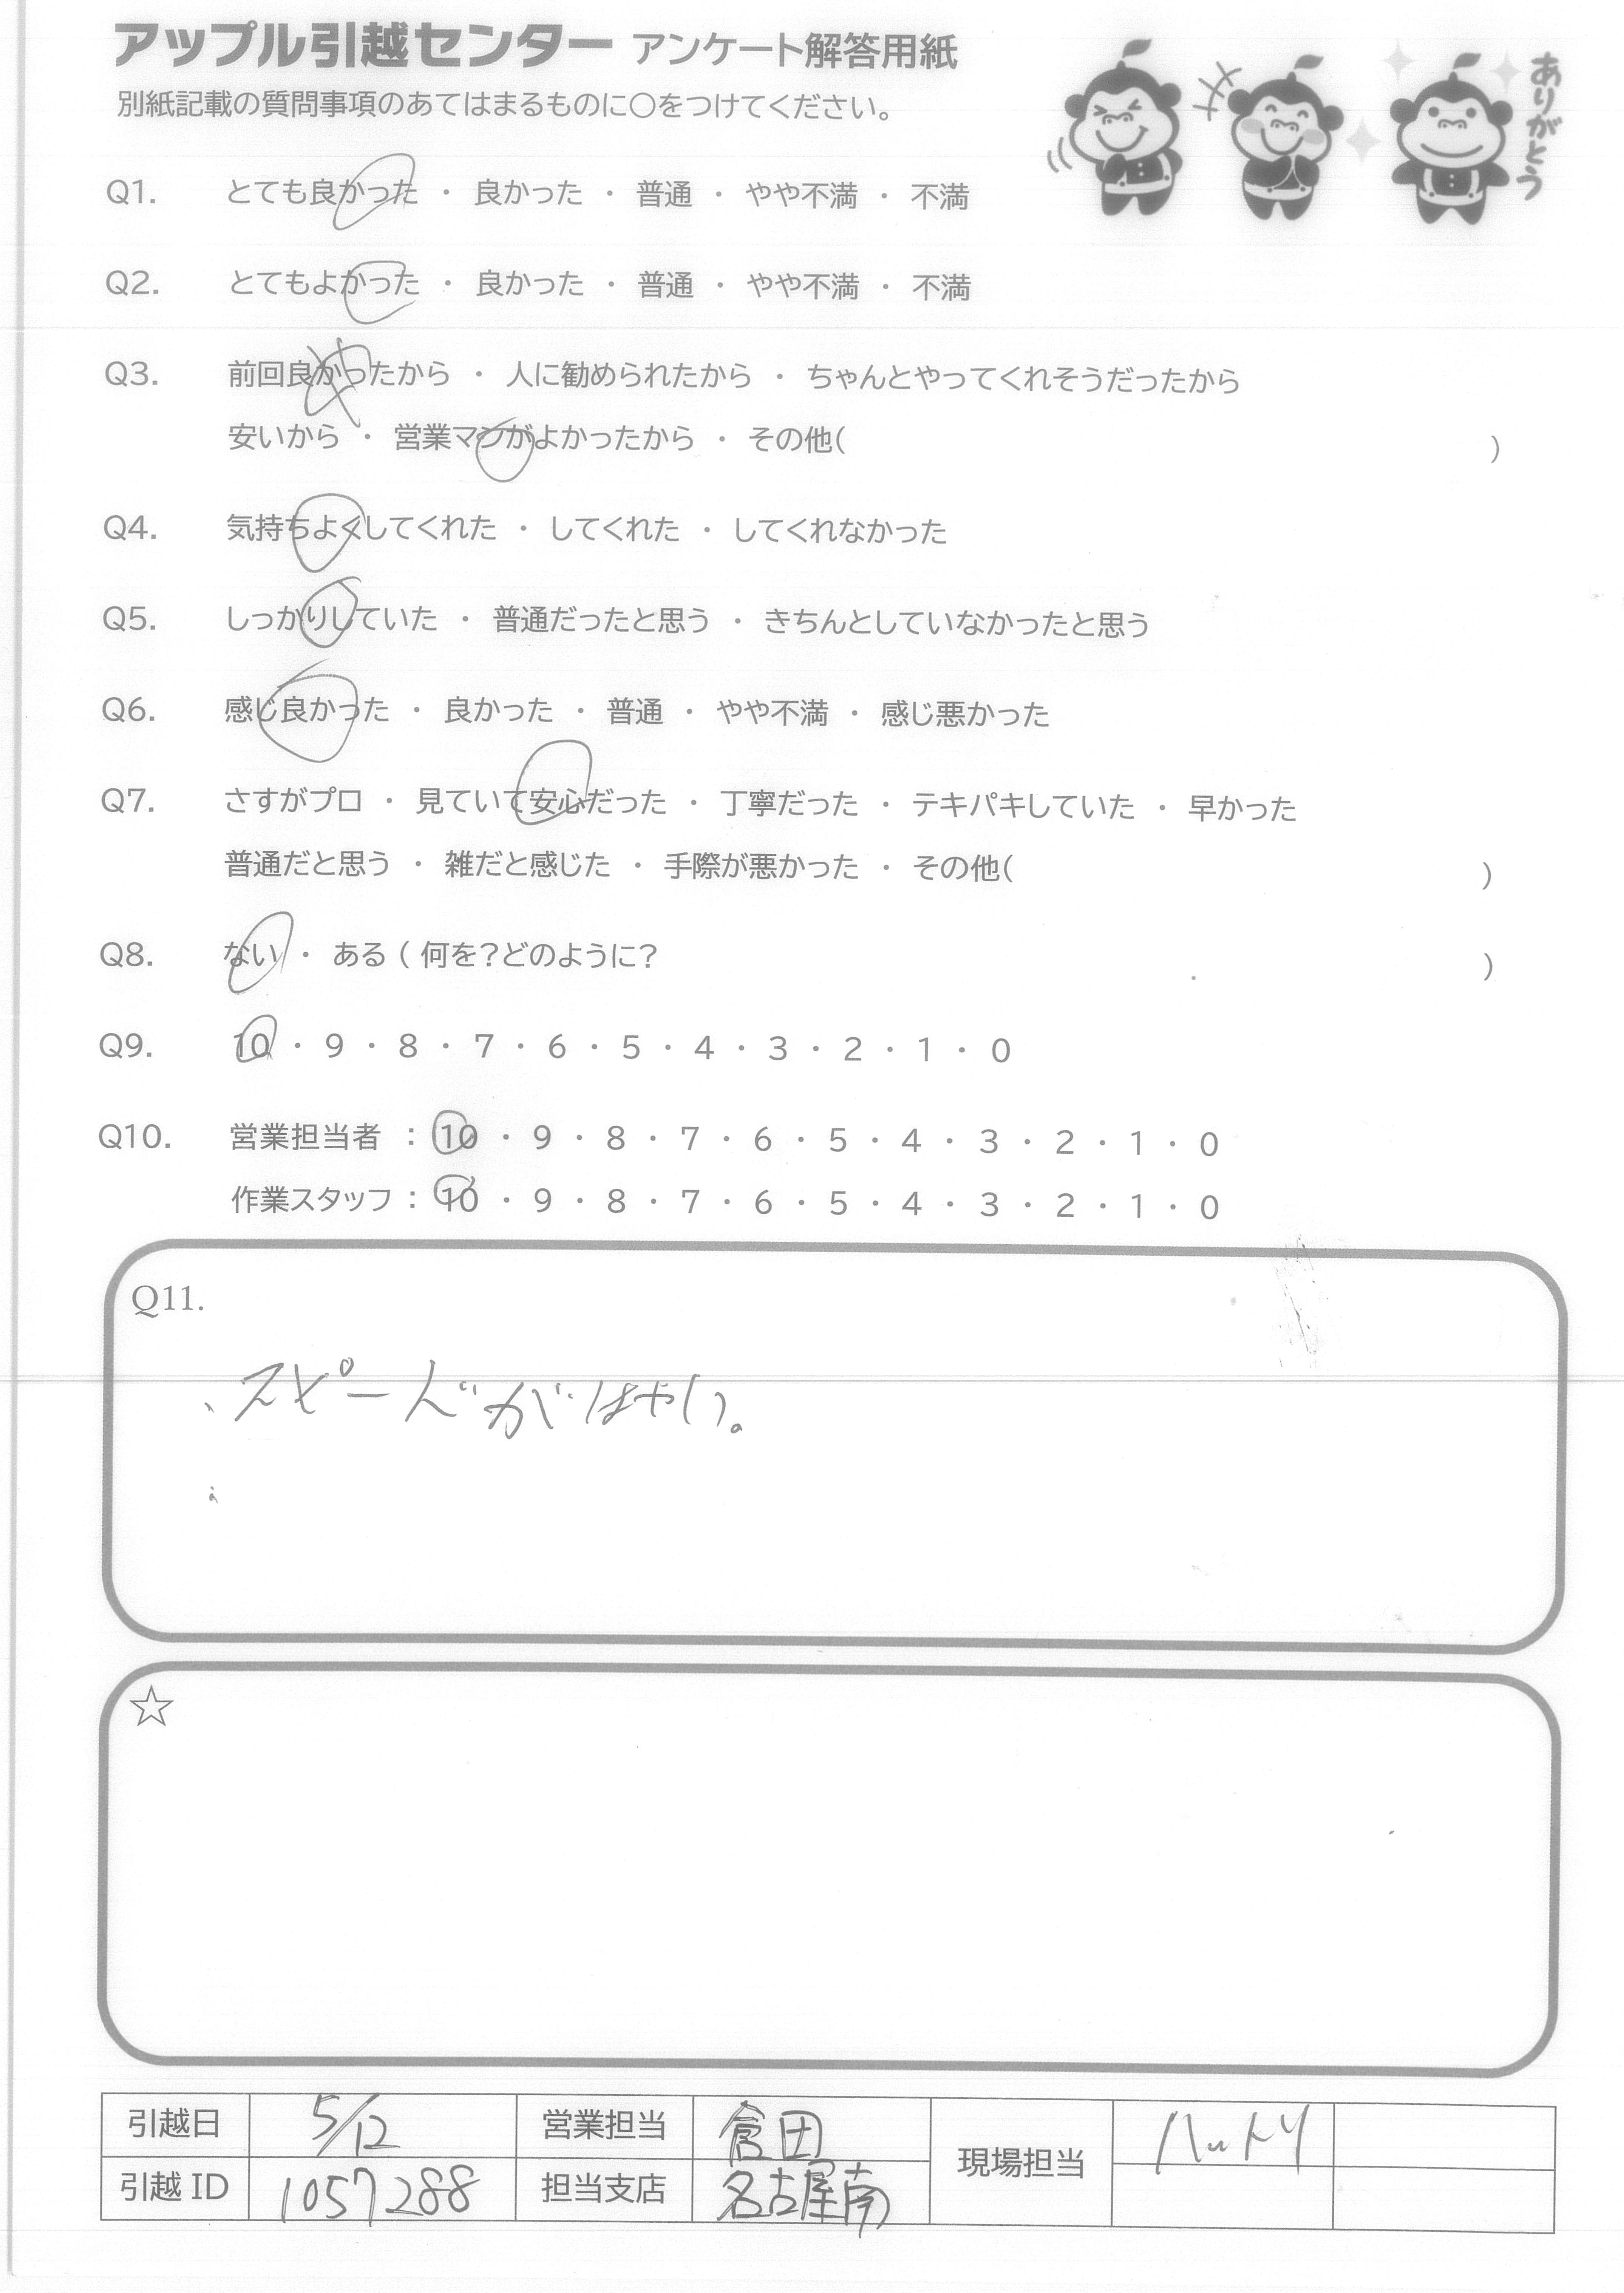 アップル引越センター アンケート解答用紙
ありがとう
別紙記載の質問事項のあてはまるものに○をつけてください。
Q1. とても良かった ・ 良かった ・ 普通 ・ やや不満 ・ 不満
Q2. とてもよかった ・ 良かった ・ 普通 ・ やや不満 ・ 不満
Q3. 前回良かったから ・ 人に勧められたから ・ ちゃんとやってくれそうだったから
安いから ・ 営業マンがよかったから ・ その他( )
Q4. 気持ちよくしてくれた ・ してくれた ・ してくれなかった
Q5. しっかりしていた ・ 普通だったと思う ・ きちんとしていなかったと思う
Q6. 感じ良かった ・ 良かった ・ 普通 ・ やや不満 ・ 感じ悪かった
Q7. さすがプロ ・ 見ていて安心だった ・ 丁寧だった ・ テキパキしていた ・ 早かった
普通だと思う ・ 雑だと感じた ・ 手際が悪かった ・ その他( )
Q8. ない ・ ある ( 何を?どのように? )
Q9. 10 ・ 9 ・ 8 ・ 7 ・ 6 ・ 5 ・ 4 ・ 3 ・ 2 ・ 1 ・ 0
Q10. 営業担当者 : 10 ・ 9 ・ 8 ・ 7 ・ 6 ・ 5 ・ 4 ・ 3 ・ 2 ・ 1 ・ 0
作業スタッフ : 10 ・ 9 ・ 8 ・ 7 ・ 6 ・ 5 ・ 4 ・ 3 ・ 2 ・ 1 ・ 0
Q11.
、スピードがはやい。
☆
引越日 5/12 営業担当 倉田 現場担当
引越ID 1057288 担当支店 名古屋南